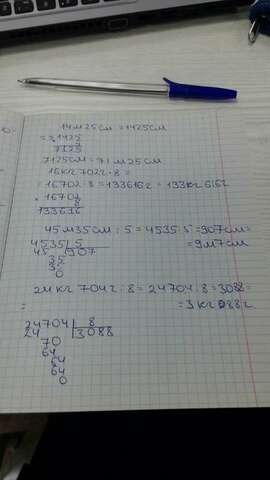 14м25см = 1425см
= × 1425
5
7125
7125см = 71м25см
16кг702г · 8 =
= 16702 · 8 = 133616г = 133кг616г
× 16702
8
133616
45м35см : 5 = 4535 : 5 = 907см =
= 9м7см
4535 | 5
45 | 907
35
35
0
24кг704г : 8 = 24704 : 8 = 3088 =
= 3кг088г
24704 | 8
24 | 3088
70
64
64
64
0